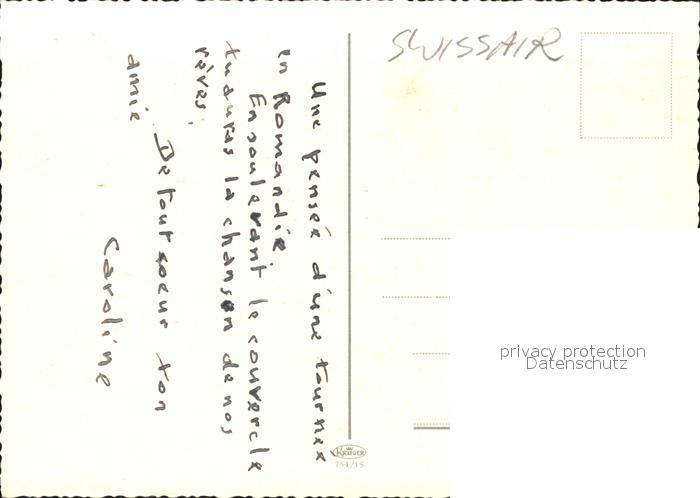 Une pensée d'une tournée
en Romandie.
En soulevant le couvercle
tu auras la chanson de nos
rêves.
De tout coeur ton
amie
Caroline
SWISSAIR
KRÜGER
754/15
privacy protection
Datenschutz